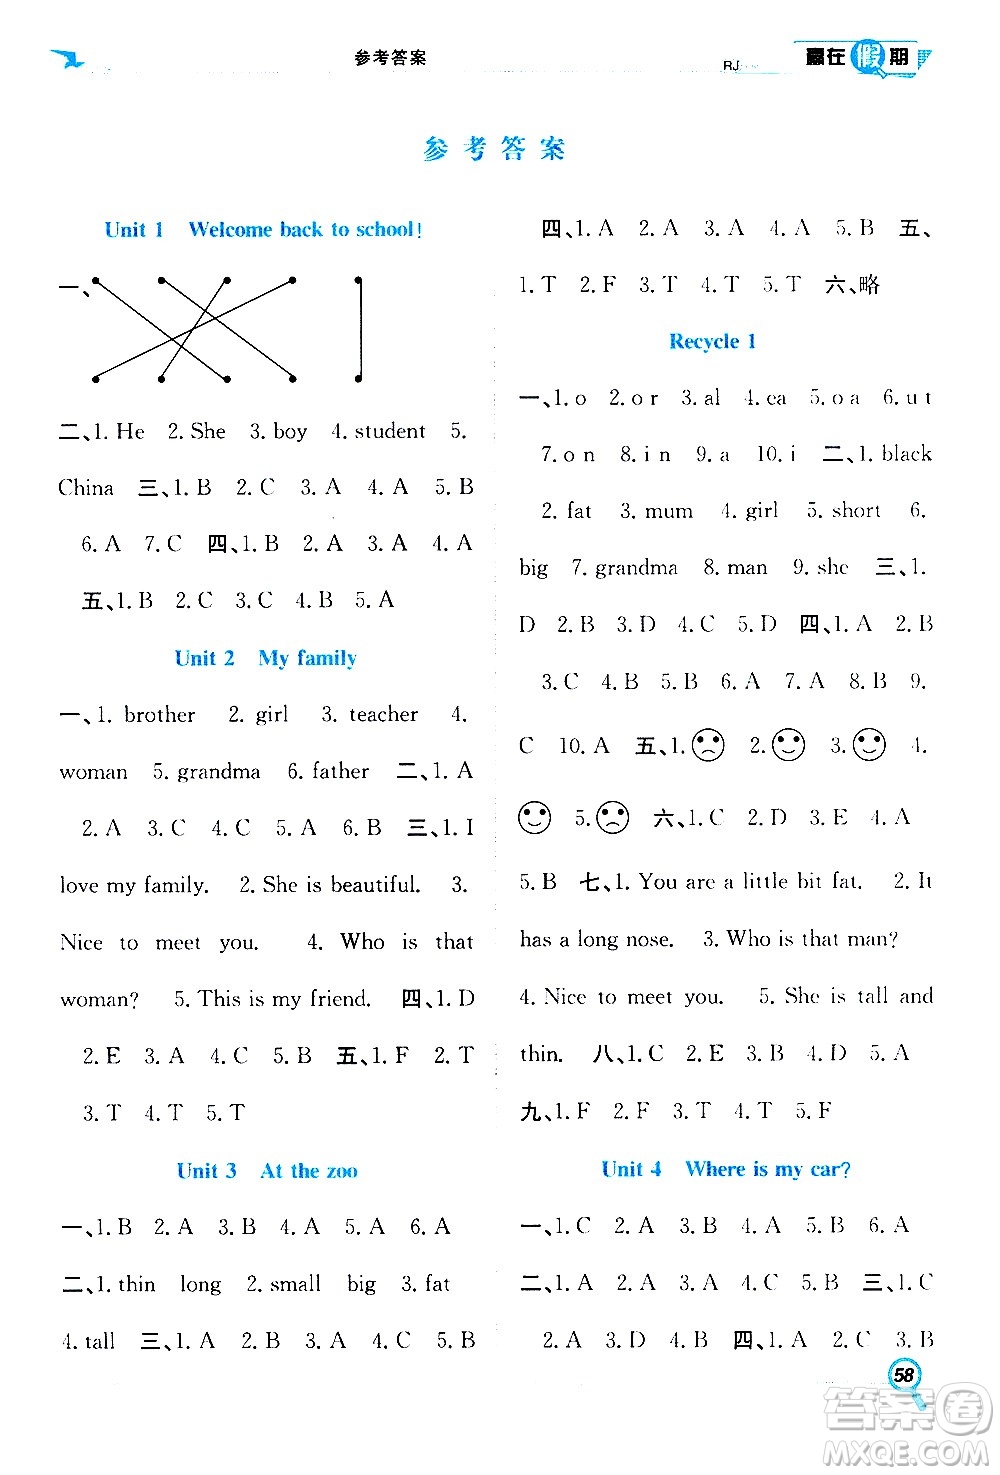 参考答案
RJ
赢在假期
参考答案
Unit 1 Welcome back to school!
一、
二、1. He 2. She 3. boy 4. student 5.
China 三、1. B 2. C 3. A 4. A 5. B
6. A 7. C 四、1. B 2. A 3. A 4. A
五、1. B 2. C 3. C 4. B 5. A
Unit 2 My family
一、1. brother 2. girl 3. teacher 4.
woman 5. grandma 6. father 二、1. A
2. A 3. C 4. C 5. A 6. B 三、1. I
love my family. 2. She is beautiful. 3.
Nice to meet you. 4. Who is that
woman? 5. This is my friend. 四、1. D
2. E 3. A 4. C 5. B 五、1. F 2. T
3. T 4. T 5. T
Unit 3 At the zoo
一、1. B 2. A 3. B 4. A 5. A 6. A
二、1. thin long 2. small big 3. fat
4. tall 三、1. A 2. B 3. A 4. B
四、1. A 2. A 3. A 4. A 5. B 五、
1. T 2. F 3. T 4. T 5. T 六、略
Recycle 1
一、1. o 2. o r 3. al 4. ea 5. o a 6. u t
7. o n 8. i n 9. a 10. i 二、1. black
2. fat 3. mum 4. girl 5. short 6.
big 7. grandma 8. man 9. she 三、1.
D 2. B 3. D 4. C 5. D 四、1. A 2. B
3. C 4. B 5. B 6. A 7. A 8. B 9.
C 10. A 五、1. 2. 3. 4.
5. 六、1. C 2. D 3. E 4. A
5. B 七、1. You are a little bit fat. 2. It
has a long nose. 3. Who is that man?
4. Nice to meet you. 5. She is tall and
thin. 八、1. C 2. E 3. B 4. D 5. A
九、1. F 2. F 3. T 4. T 5. F
Unit 4 Where is my car?
一、1. C 2. A 3. B 4. A 5. B 6. A
二、1. A 2. A 3. A 4. C 5. B 三、1. C
2. A 3. D 4. B 四、1. A 2. C 3. B
58
答案卷
MXQE.COM